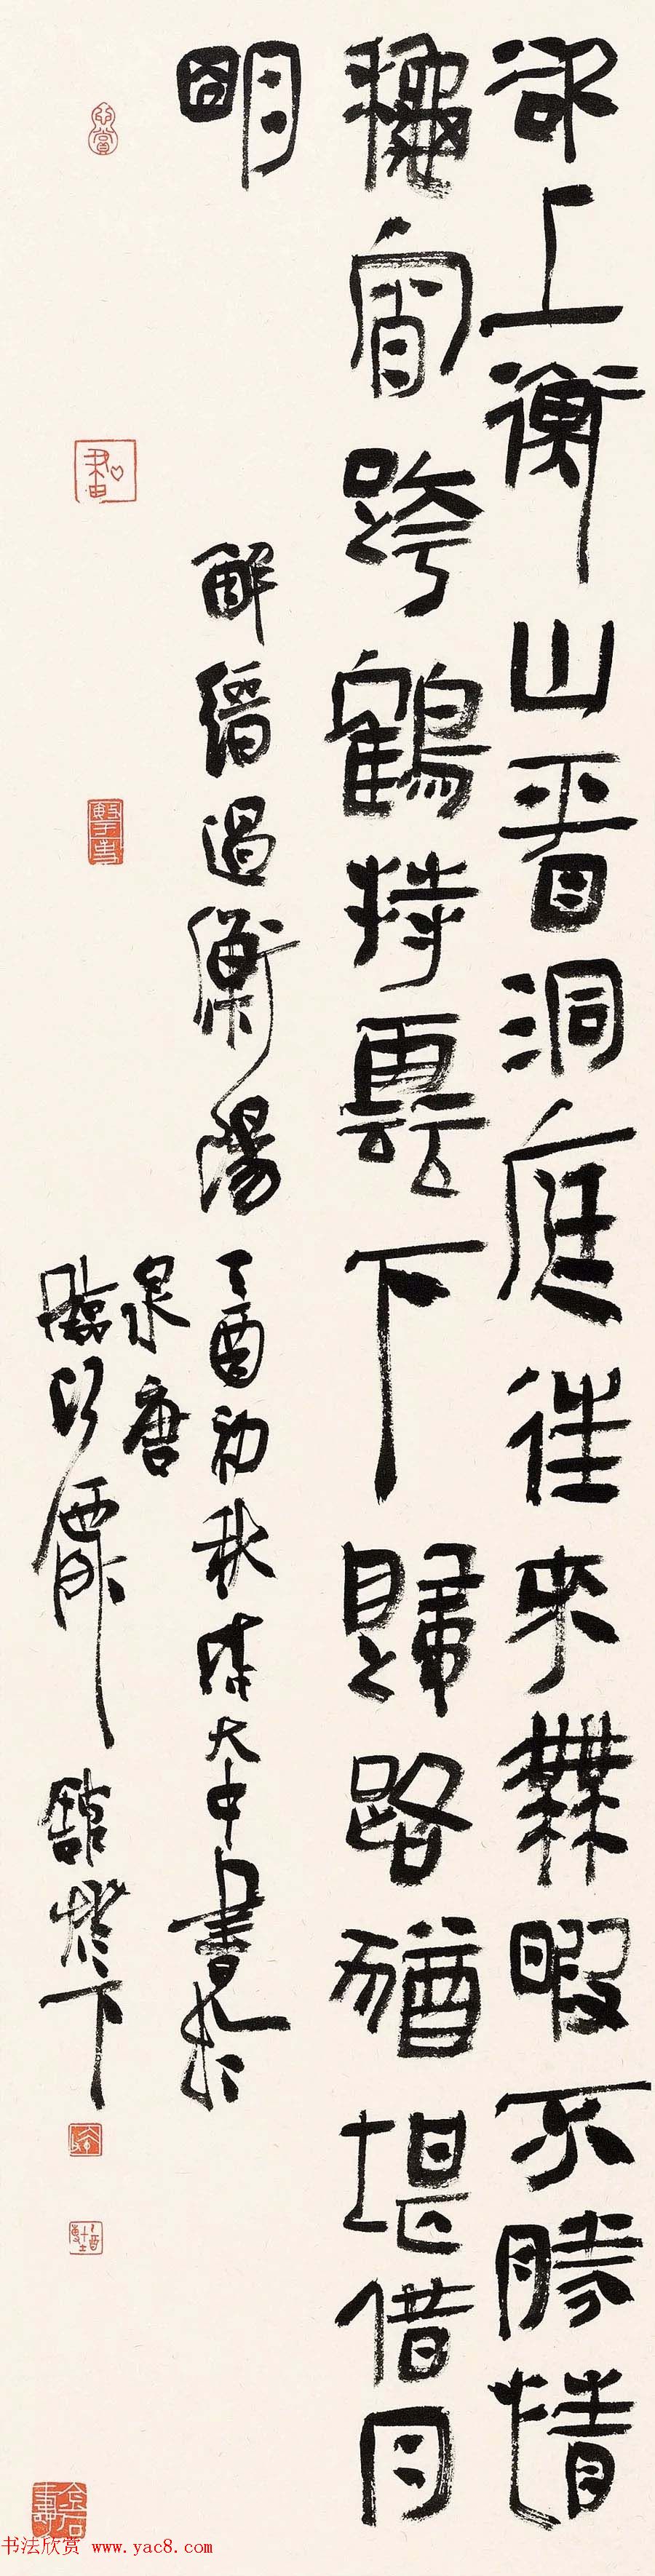 欲上衡山看洞庭徃來無暇不勝情
穐宵跨鶴持雲下歸路猶堪借月
明
解縉過衡陽
丁酉初秋陳大中書於
泉唐
臨江僊館燈下
书法欣赏 www.yac8.com